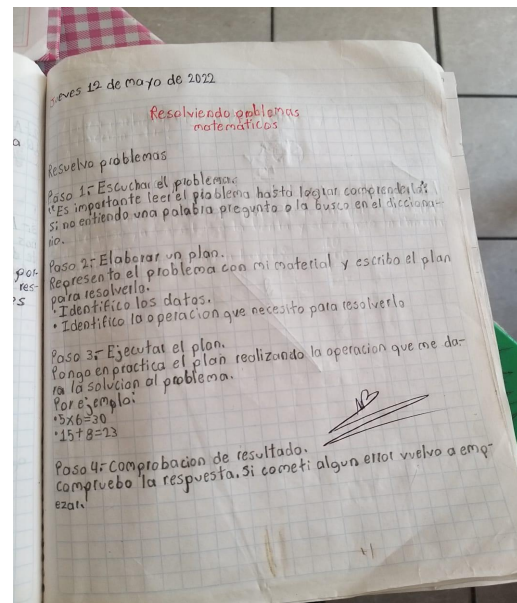 Jueves 12 de mayo de 2022
Resolviendo problemas
matemáticos
Resuelvo problemas
Paso 1:- Escuchar el problema.
"Es importante leer el problema hasta lograr comprenderlo"
si no entiendo una palabra pregunto o la busco en el dicciona-
rio.
Paso 2:- Elaborar un plan.
Represento el problema con mi material y escribo el plan
para resolverlo.
• Identifico los datos.
• Identifico la operacion que necesito para resolverlo
Paso 3:- Ejecutar el plan.
Pongo en practica el plan realizando la operacion que me da-
ra la solucion al problema.
Por ejemplo:
• 5x6=30
• 15+8=23
Paso 4:- Comprobacion de resultado.
compruebo la respuesta. Si cometi algun error vuelvo a emp-
ezar.
a
por-
res-
s